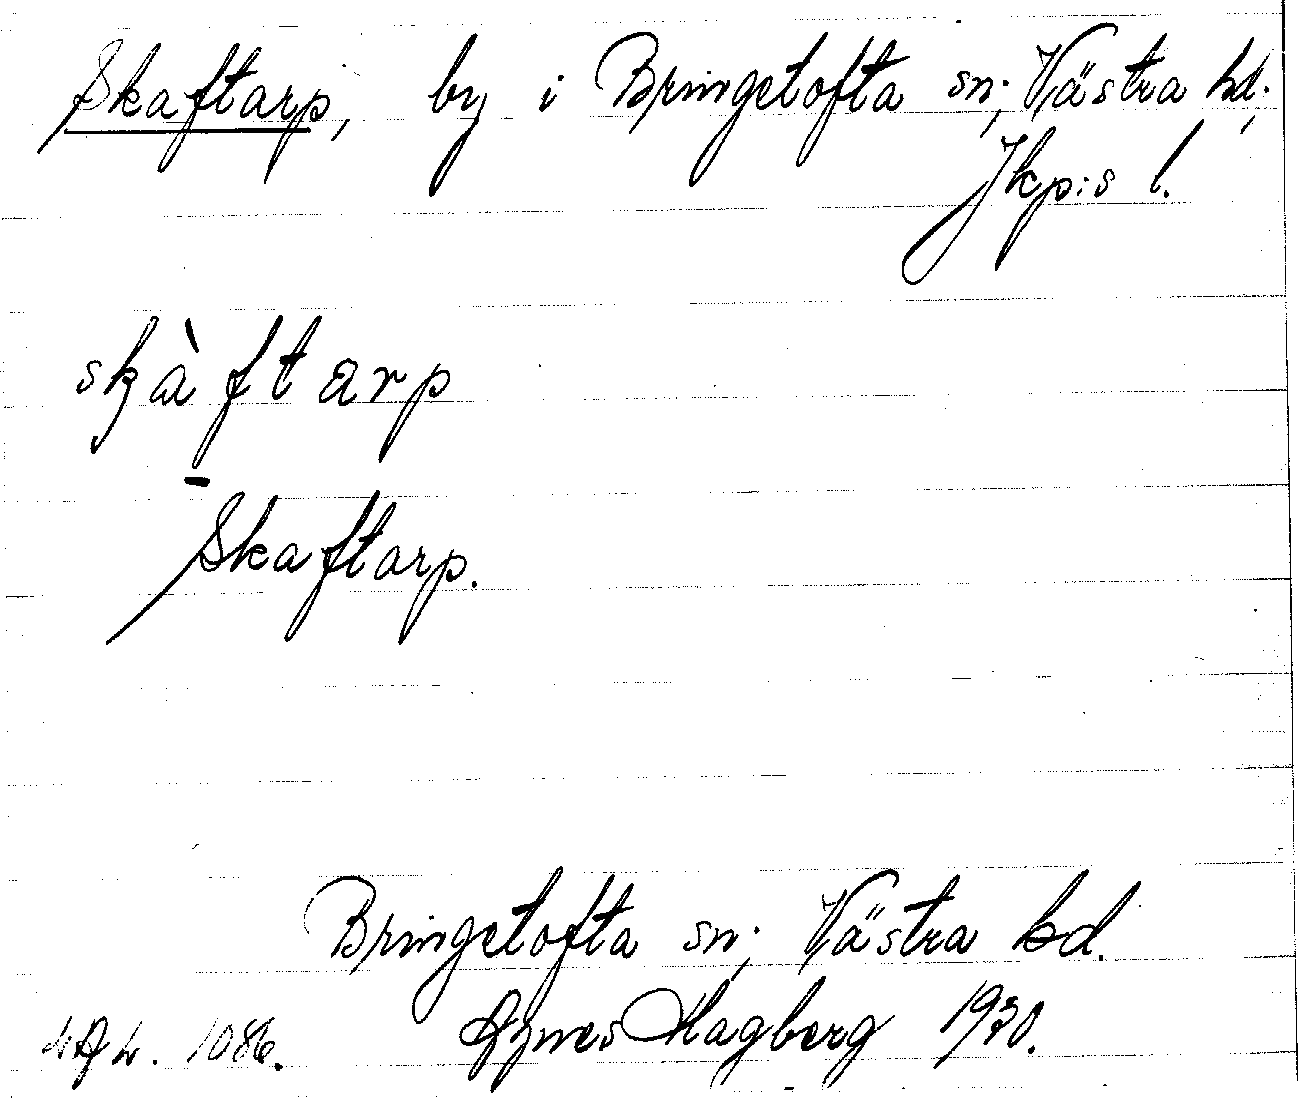 Skaftarp, by i Bringetofta sn; Västra hd;
Jkp:s l.
skàftarp
Skaftarp.
Bringetofta sn; Västra hd.
Agnes Hagberg 1930.
1086.